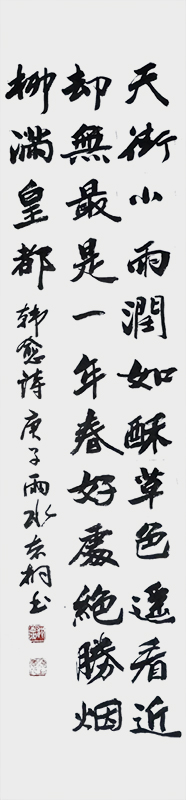 天街小雨潤如酥草色遥看近
却無最是一年春好處絶勝烟
柳满皇都
韩愈詩庚子雨水